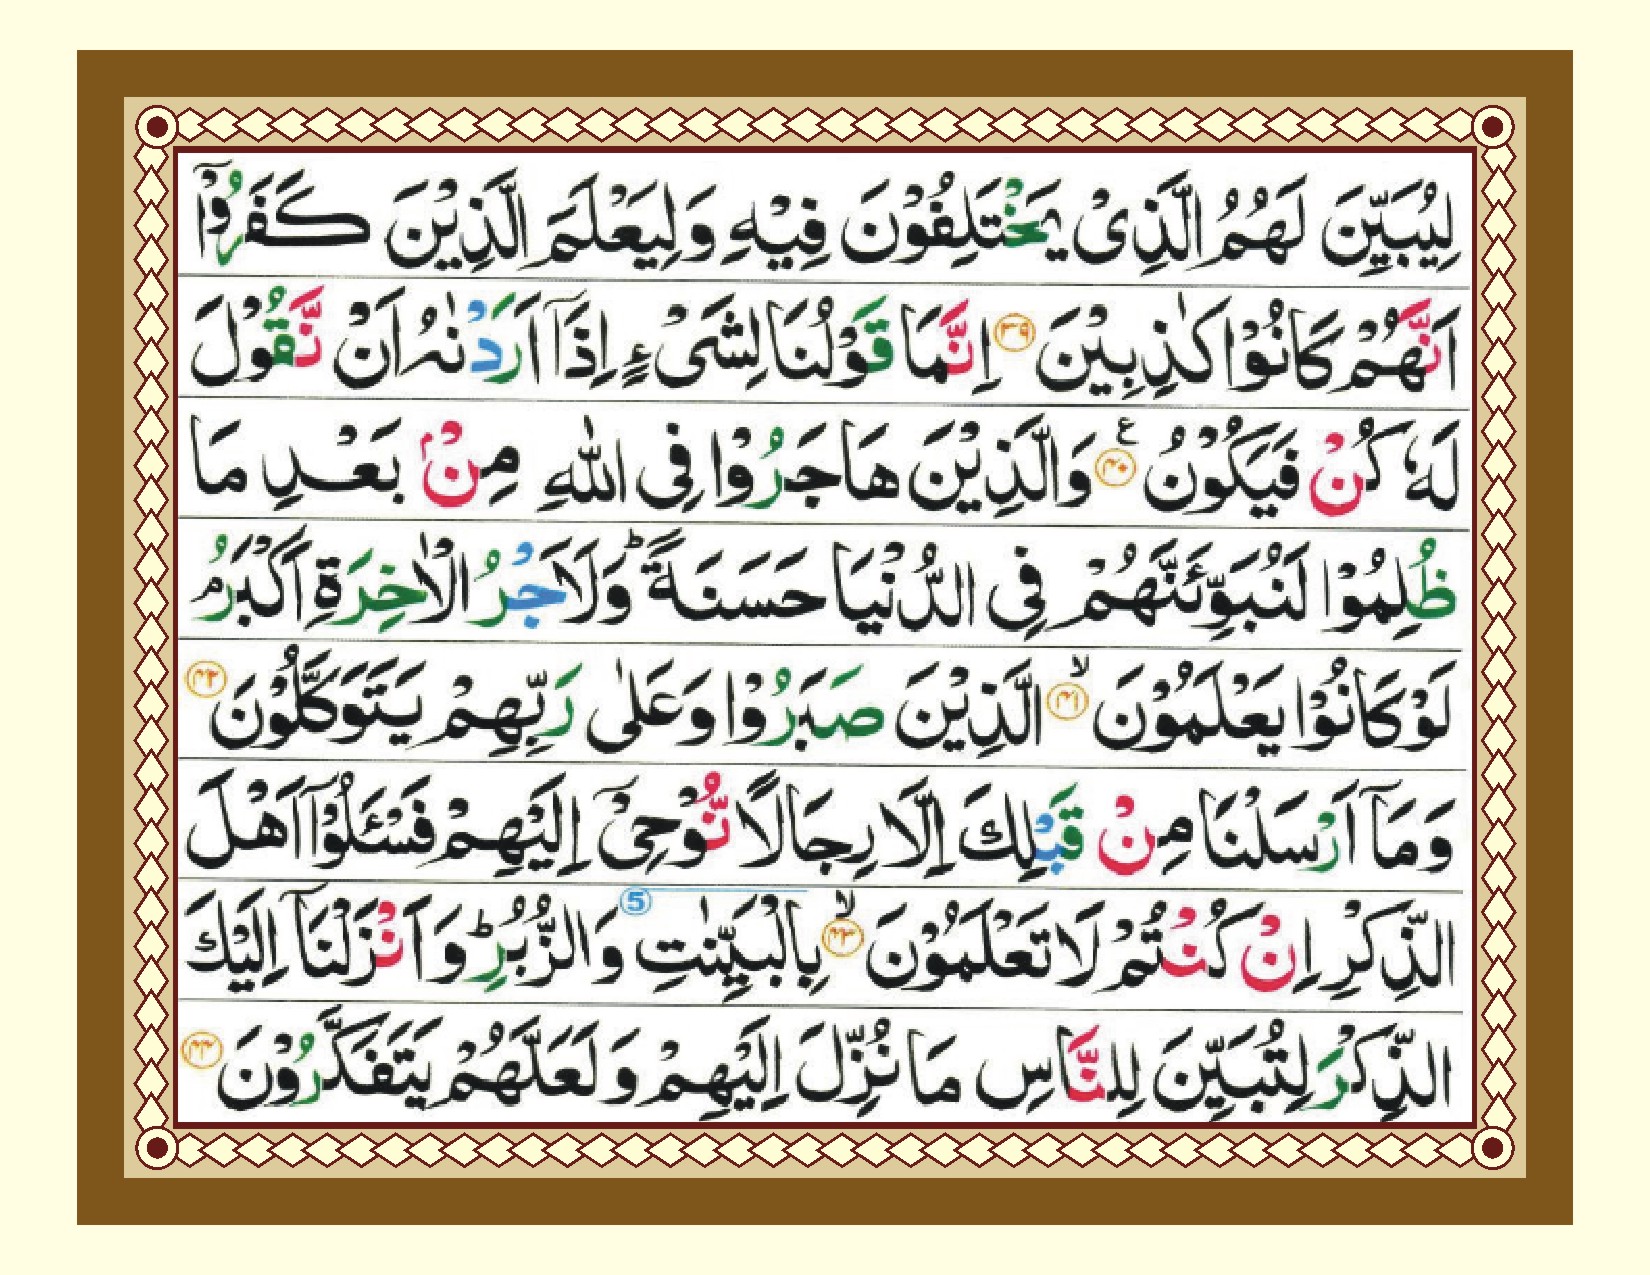 لِيُبَيِّنَ لَهُمُ الَّذِیْ يَخْتَلِفُوْنَ فِيْهِ وَلِيَعْلَمَ الَّذِيْنَ كَفَرُوْۤا
اَنَّهُمْ كَانُوْا كٰذِبِيْنَ ۳۹ اِنَّمَا قَوْلُنَا لِشَیْءٍ اِذَاۤ اَرَدْنٰهُ اَنْ نَّقُوْلَ
لَهٗ كُنْ فَيَكُوْنُ ۴۰ ع وَالَّذِيْنَ هَاجَرُوْا فِی اللّٰهِ مِنْۢ بَعْدِ مَا
ظُلِمُوْا لَنُبَوِّئَنَّهُمْ فِی الدُّنْيَا حَسَنَةً ؕ وَلَاَجْرُ الْاٰخِرَةِ اَكْبَرُ ۘ
لَوْ كَانُوْا يَعْلَمُوْنَ ۴۱ ۙ الَّذِيْنَ صَبَرُوْا وَعَلٰی رَبِّهِمْ يَتَوَكَّلُوْنَ ۴۲
وَمَاۤ اَرْسَلْنَا مِنْ قَبْلِكَ اِلَّا رِجَالًا نُّوْحِیْۤ اِلَيْهِمْ فَسْـَٔلُوْۤا اَهْلَ
الذِّكْرِ اِنْ كُنْتُمْ لَا تَعْلَمُوْنَ ۴۳ ۙ بِالْبَيِّنٰتِ 5 وَالزُّبُرِ ؕ وَاَنْزَلْنَاۤ اِلَيْكَ
الذِّكْرَ لِتُبَيِّنَ لِلنَّاسِ مَا نُزِّلَ اِلَيْهِمْ وَلَعَلَّهُمْ يَتَفَكَّرُوْنَ ۴۴